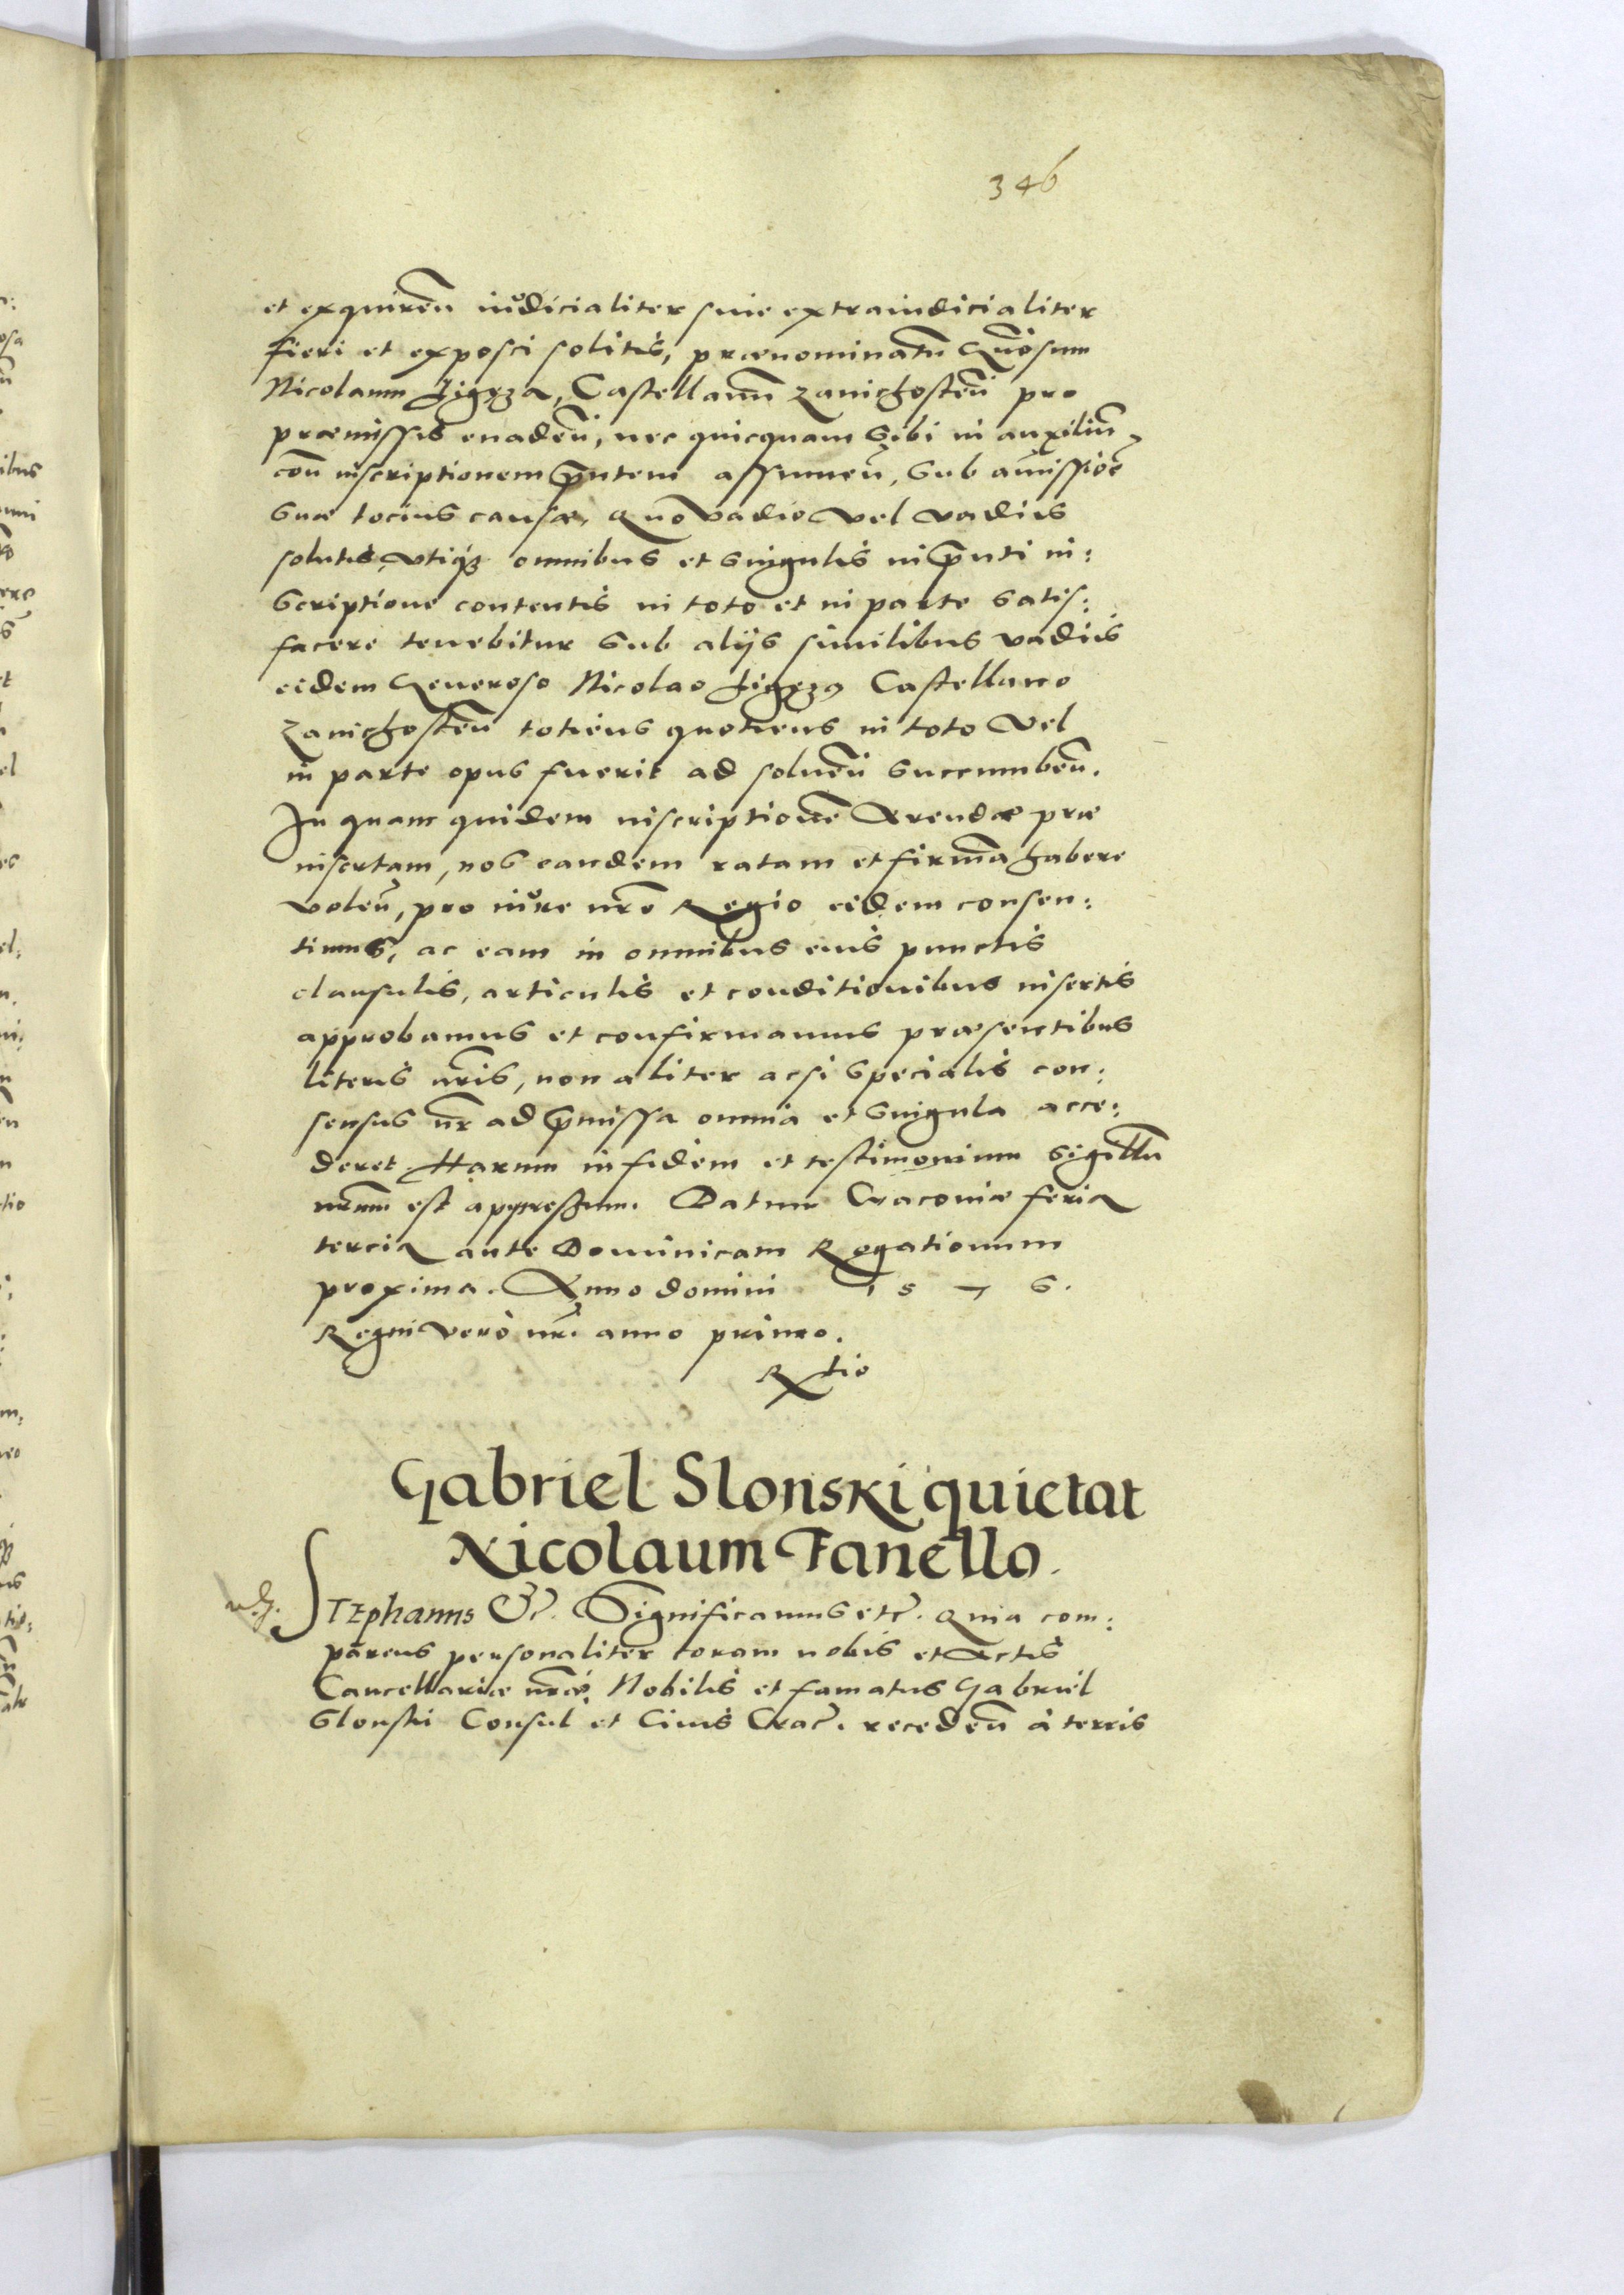 346
et exquiren̄ iudicialiter siue extraiudicialiter
fieri et exposci solitis, prænominatū Gn̄osum
Nicolaum Ligęza, Castellanū Zauichosten̄ pro
præmissis euaden̄, nec quicquam sibi in auxiliū
con̄ inscriptionem p̄ntem assumen̄, sub amissioē
suæ tocius causæ, Quo vadio vel vadiis
solutis, vtiqꝫ omnibus et singulis in p̄nti in:
scriptione contentis in toto et in parte satis:
facere tenebitur sub alijs similibus vadiis
eidem Generoso Nicolao Ligęza Castellano
Zauichosten̄ totiens quotiens in toto vel
in parte opus fuerit ad soluen̄ succumben̄.
In quam quidem inscriptionē Arendæ præ
insertam, nos eandem ratam et firmā habere
volen̄, pro iure nr̄o Regio eidem consen:
timus, ac eam in omnibus eius punctis
clausulis, articulis et conditionibus insertis
approbamus et confirmamus præsentibus
literis nr̄is, non aliter acsi specialis con:
sensus nr̄ ad p̄missa omnia et singula acce:
deret. Harum in fidem et testimonium sigillū
nr̄um est appressum. Datum Cracouiæ feria
tercia ante Dominicam Rogationum
proxima. Anno domini 1576.
Regni vero nr̄i anno primo.
Rtio
Gabriel Slonski quietat
Nicolaum Fanello.
Stephanus &c. Significamus etc. Quia com:
parens personaliter coram nobis et Actis
Cancellariæ nr̄æ, Nobilis et famatus Gabriel
Slonski Consul et Ciuis Crac. receden̄ à terris